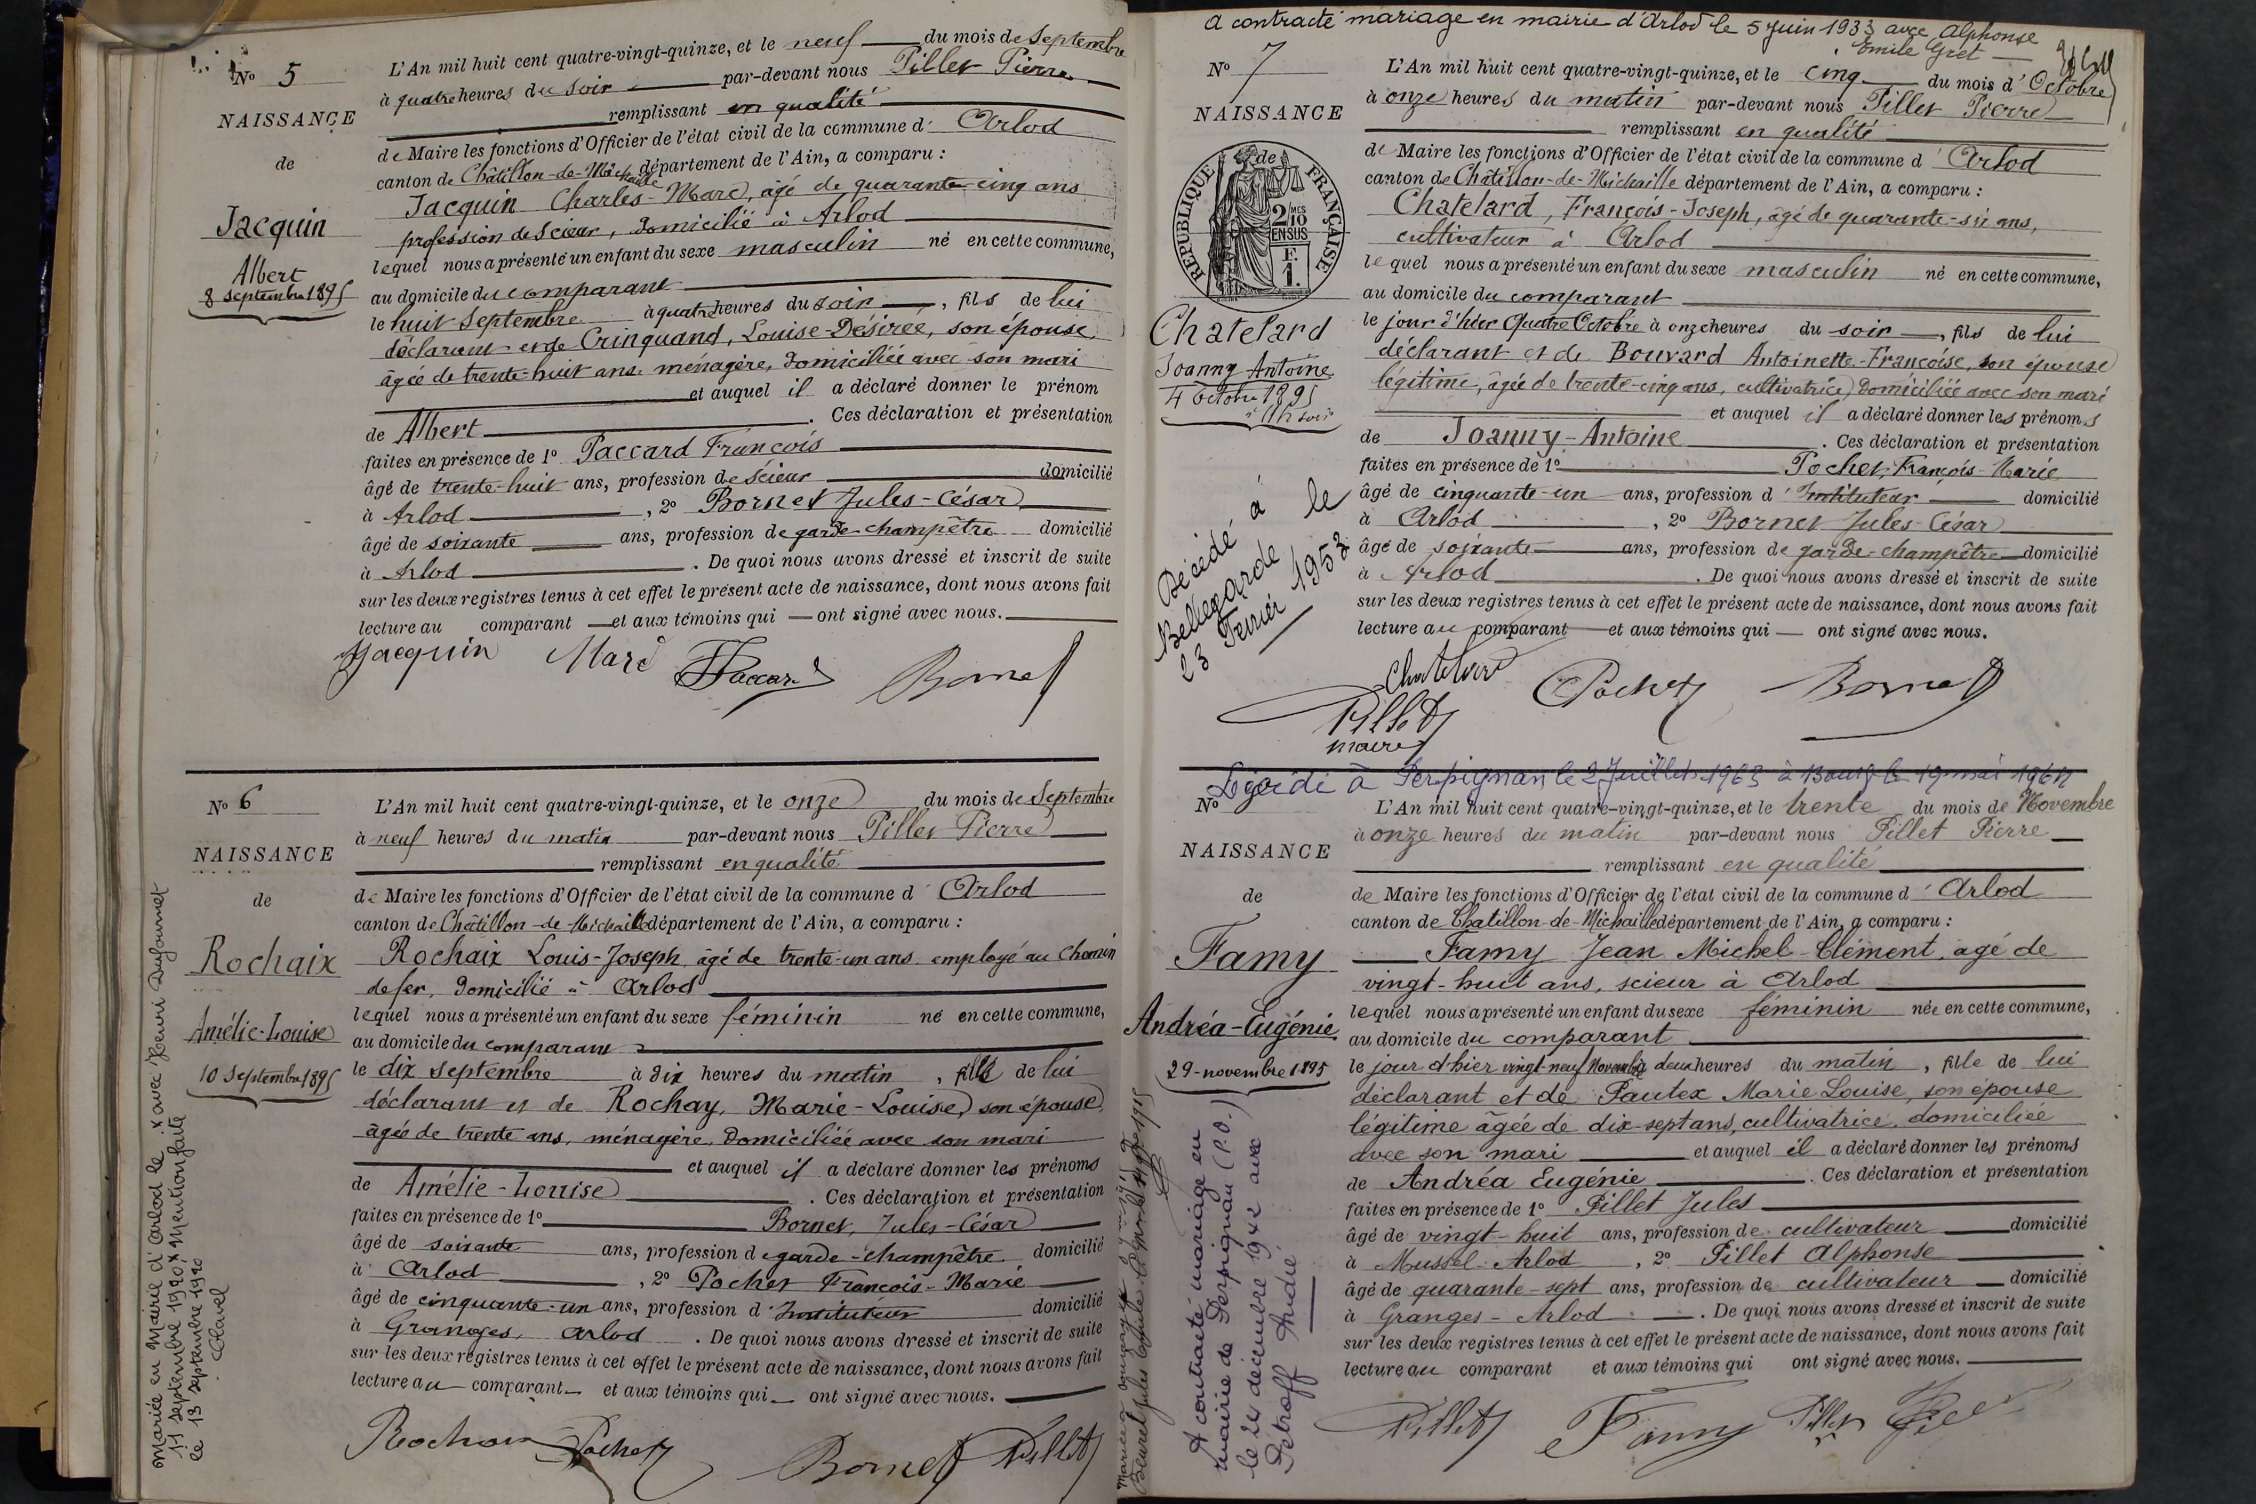 No 5
NAISSANCE
de
Jacquin
Albert
8 septembre 1895
L'An mil huit cent quatre-vingt-quinze, et le neuf du mois de Septembre
à quatre heures du soir par-devant nous Pillet Pierre
remplissant en qualité
de Maire les fonctions d'Officier de l'état civil de la commune d' Arlod
canton de Châtillon-de-Michaille département de l'Ain, a comparu :
Jacquin Charles-Marc, âgé de quarante-cinq ans
profession de scieur, domicilié à Arlod
lequel nous a présenté un enfant du sexe masculin né en cette commune,
au domicile du comparant
le huit Septembre à quatre heures du soir, fils de lui
déclarant et de Crinquand, Louise-Désirée, son épouse,
âgée de trente-huit ans, ménagère, domiciliée avec son mari
et auquel il a déclaré donner le prénom
de Albert. Ces déclaration et présentation
faites en présence de 1o Paccard François
âgé de trente-huit ans, profession de scieur domicilié
à Arlod, 2o Bornet Jules-César
âgé de soixante ans, profession de garde-champêtre domicilié
à Arlod. De quoi nous avons dressé et inscrit de suite
sur les deux registres tenus à cet effet le présent acte de naissance, dont nous avons fait
lecture au comparant et aux témoins qui ont signé avec nous.
Jacquin Marc Paccard Bornet
No 6
NAISSANCE
de
Rochaix
Amélie-Louise
10 Septembre 1895
Mariée en Mairie d'Arlod le 11 septembre 1920 x avec Henri Dufournet
x Mention faite
le 13 septembre 1920
Clavel
L'An mil huit cent quatre-vingt-quinze, et le onze du mois de Septembre
à neuf heures du matin par-devant nous Pillet Pierre
remplissant en qualité
de Maire les fonctions d'Officier de l'état civil de la commune d' Arlod
canton de Châtillon-de-Michaille département de l'Ain, a comparu :
Rochaix Louis-Joseph, âgé de trente-un ans employé au Chemin
de fer, domicilié à Arlod
lequel nous a présenté un enfant du sexe féminin né en cette commune,
au domicile du comparant
le dix septembre à dix heures du matin, fille de lui
déclarant et de Rochay, Marie-Louise, son épouse,
âgée de trente ans, ménagère, domiciliée avec son mari
et auquel il a déclaré donner les prénoms
de Amélie-Louise. Ces déclaration et présentation
faites en présence de 1o Bornet, Jules-César
âgé de soixante ans, profession de garde-champêtre domicilié
à Arlod, 2o Pochet François-Marie
âgé de cinquante-un ans, profession d'Instituteur domicilié
à Granges, Arlod. De quoi nous avons dressé et inscrit de suite
sur les deux registres tenus à cet effet le présent acte de naissance, dont nous avons fait
lecture au comparant et aux témoins qui ont signé avec nous.
Rochaix Pochet Bornet Pillet
a contracté mariage en mairie d'Arlod le 5 Juin 1933 avec Alphonse
Emile Gret
No 7
NAISSANCE
de
REPUBLIQUE FRANÇAISE
2 MES
10
EN SUS
F.
1.
Chatelard
Joanny Antoine
4 Octobre 1895
à 11h soir
Décédé à
Bellegarde le
23 Février 1953
L'An mil huit cent quatre-vingt-quinze, et le cinq du mois d'Octobre
à onze heures du matin par-devant nous Pillet Pierre
remplissant en qualité
de Maire les fonctions d'Officier de l'état civil de la commune d' Arlod
canton de Châtillon-de-Michaille département de l'Ain, a comparu :
Chatelard, François-Joseph, âgé de quarante-six ans,
cultivateur à Arlod
lequel nous a présenté un enfant du sexe masculin né en cette commune,
au domicile du comparant
le jour d'hier Quatre Octobre à onze heures du soir, fils de lui
déclarant et de Bouvard Antoinette-Françoise, son épouse
légitime, âgée de trente-cinq ans, cultivatrice, domiciliée avec son mari
et auquel il a déclaré donner les prénoms
de Joanny-Antoine. Ces déclaration et présentation
faites en présence de 1o Pochet, François-Marie
âgé de cinquante-un ans, profession d'Instituteur domicilié
à Arlod, 2o Bornet Jules-César
âgé de soixante ans, profession de garde-champêtre domicilié
à Arlod. De quoi nous avons dressé et inscrit de suite
sur les deux registres tenus à cet effet le présent acte de naissance, dont nous avons fait
lecture au comparant et aux témoins qui ont signé avec nous.
Chatelard Pochet Bornet
Pillet
maire
à Perpignan, le 2 Juillet 1963 à Bourg le 19 mai 1964
No
NAISSANCE
de
Famy
Andréa-Eugénie
29-novembre 1895
A contracté mariage en
mairie de Perpignan (P.O.)
le 24 décembre 1942 avec
Pétroff André
L'An mil huit cent quatre-vingt-quinze, et le trente du mois de Novembre
à onze heures du matin par-devant nous Pillet Pierre
remplissant en qualité
de Maire les fonctions d'Officier de l'état civil de la commune d' Arlod
canton de Chatillon-de-Michaille département de l'Ain, a comparu :
Famy Jean Michel-Clément, agé de
vingt-huit ans, scieur à Arlod
lequel nous a présenté un enfant du sexe féminin née en cette commune,
au domicile du comparant
le jour d'hier vingt-neuf Novembre à deux heures du matin, fille de lui
déclarant et de Pautex Marie Louise, son épouse
légitime âgée de dix-sept ans, cultivatrice, domiciliée
avec son mari et auquel il a déclaré donner les prénoms
de Andréa Eugénie. Ces déclaration et présentation
faites en présence de 1o Pillet Jules
âgé de vingt-huit ans, profession de cultivateur domicilié
à Mussel-Arlod, 2o Pillet Alphonse
âgé de quarante-sept ans, profession de cultivateur domicilié
à Granges-Arlod. De quoi nous avons dressé et inscrit de suite
sur les deux registres tenus à cet effet le présent acte de naissance, dont nous avons fait
lecture au comparant et aux témoins qui ont signé avec nous.
Pillet Famy Pillet